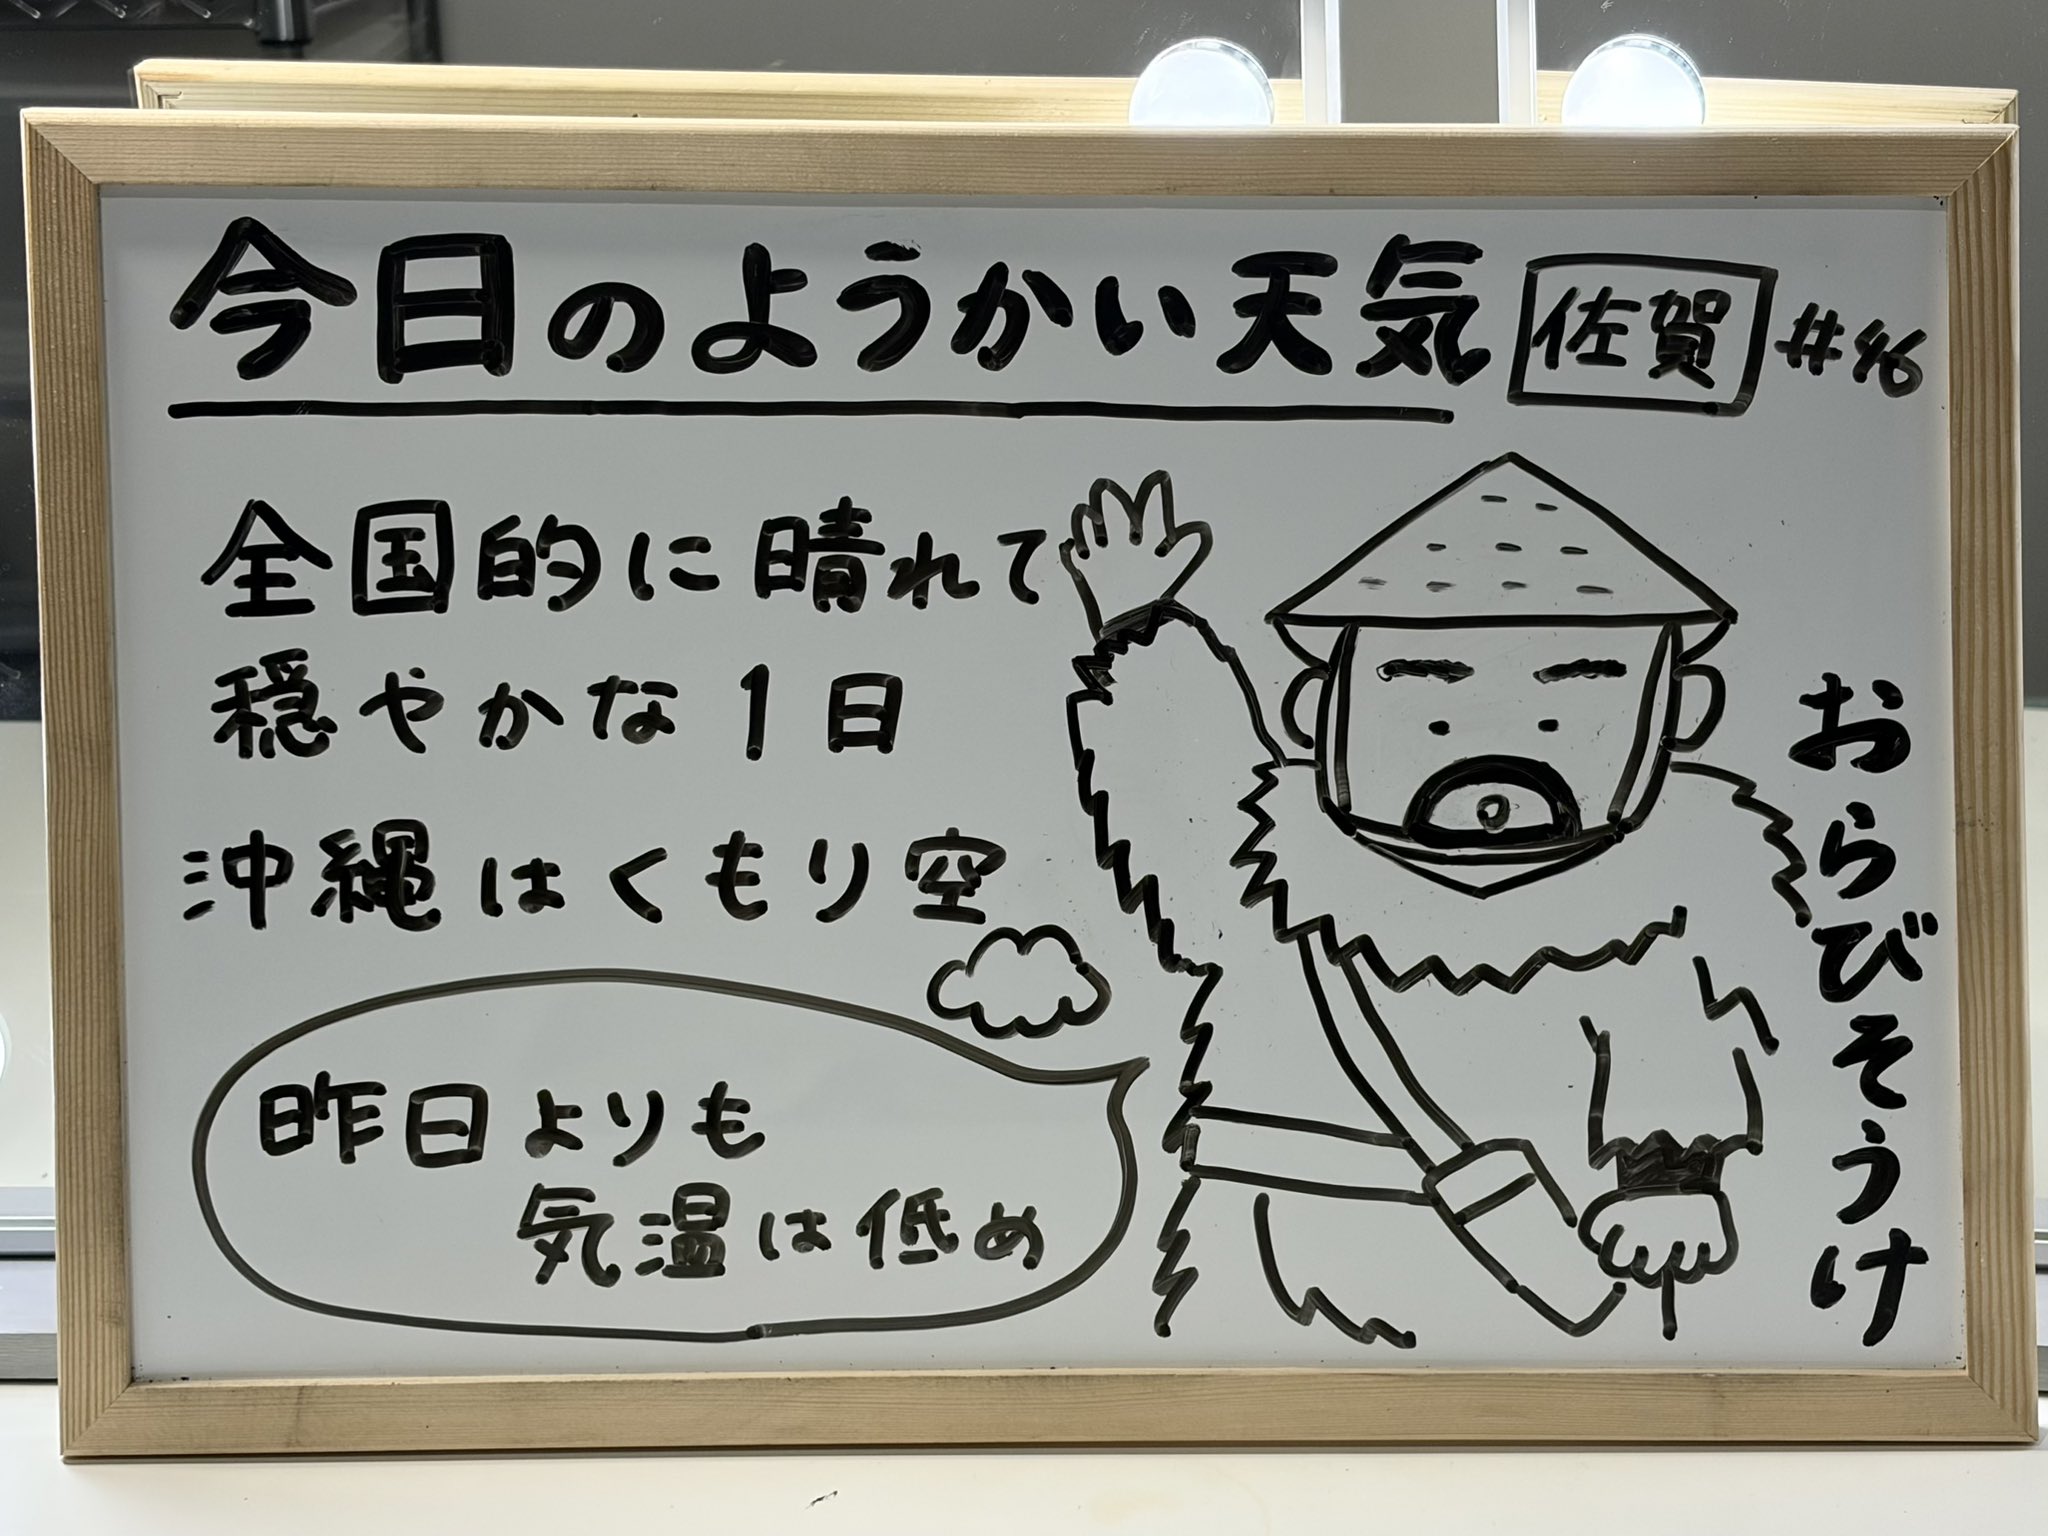 今日のようかい天気 佐賀 #46
全国的に晴れて
穏やかな1日
沖縄はくもり空
昨日よりも
気温は低め
おらびそうけ